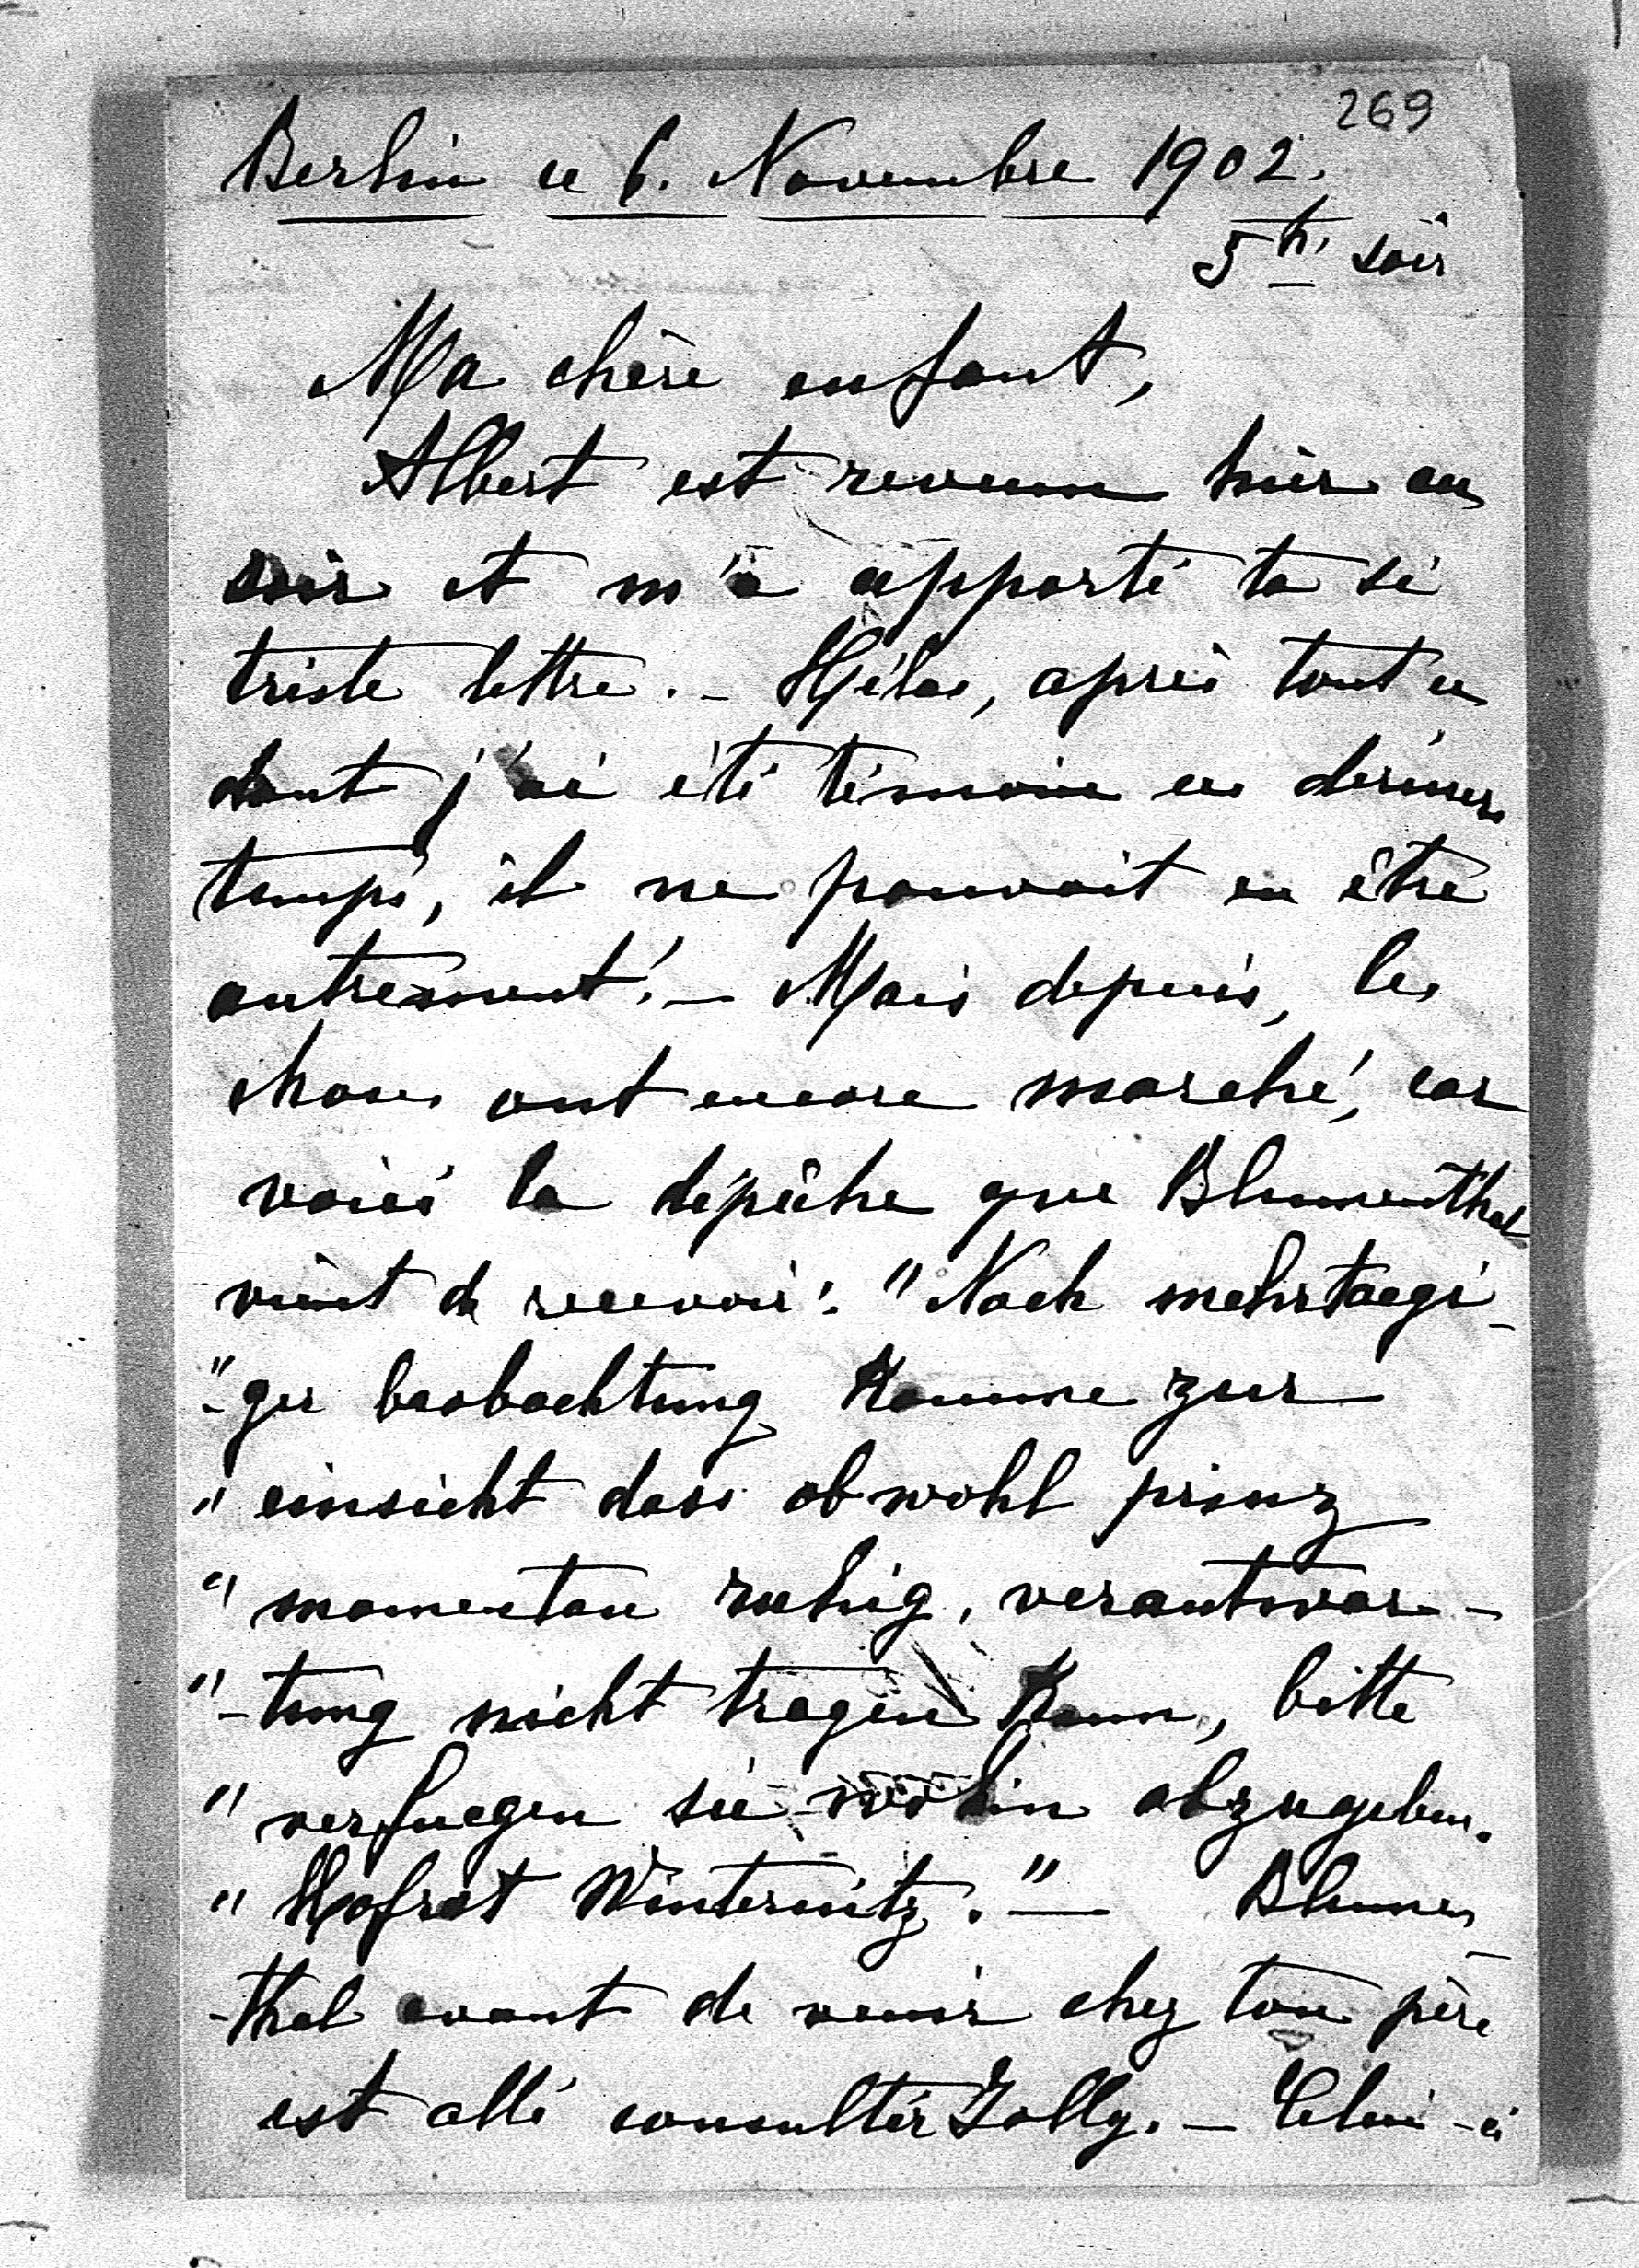 269
Berlin ce 6. Novembre 1902.
5 h. soir
Ma chère enfant,
Albert est revenu hier au
soir et m'a apporté ta si
triste lettre. - Hélas, après tout ce
dont j'ai été témoin ces derniers
temps, il ne pouvait en être
autrement! - Mais depuis, les
choses ont encore marché, car
voici la dépêche que Blumenthal
vient de recevoir: "Nach mehrtaegi-
"-ger beobachtung komme zur
" einsicht dass obwohl prinz
" momentan ruhig, verantwor-
"-tung nicht tragen kann, bitte
" verfuegen sie wohin abzugeben.
" Hofrat Winternitz." - Blumen-
-thal avant de venir chez ton père
est allé consulter Jolly. - Celui-ci